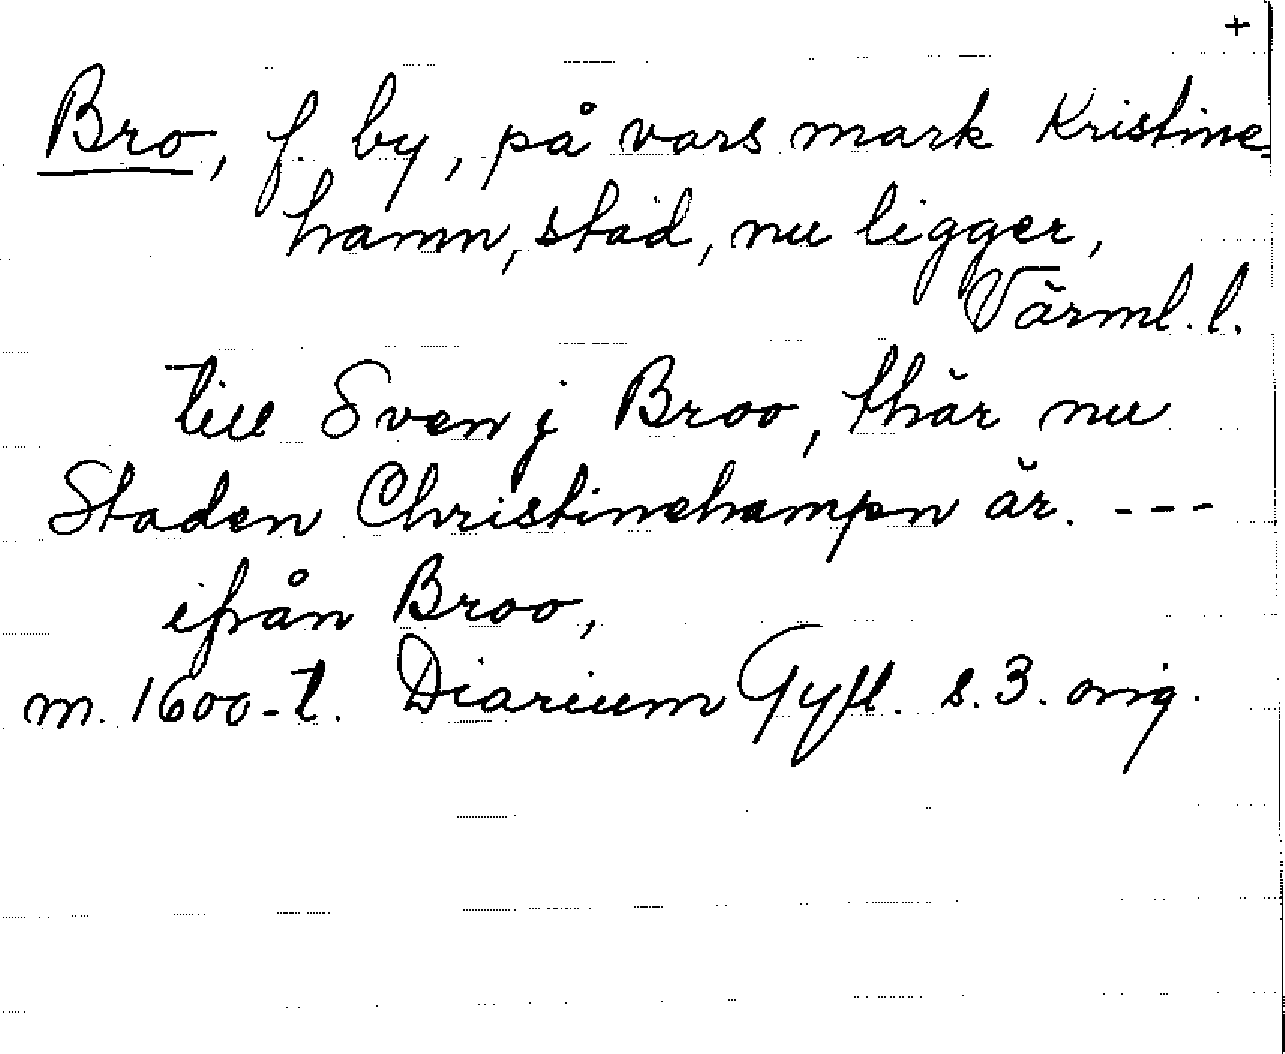 +
Bro, f. by, på vars mark Kristine-
hamn, stad, nu ligger,
Värml. l.
till Sven j Broo, thär nu
Staden Christinehampn är. ---
ifrån Broo,
m. 1600-t. Diarium Gyll. s. 3. orig.